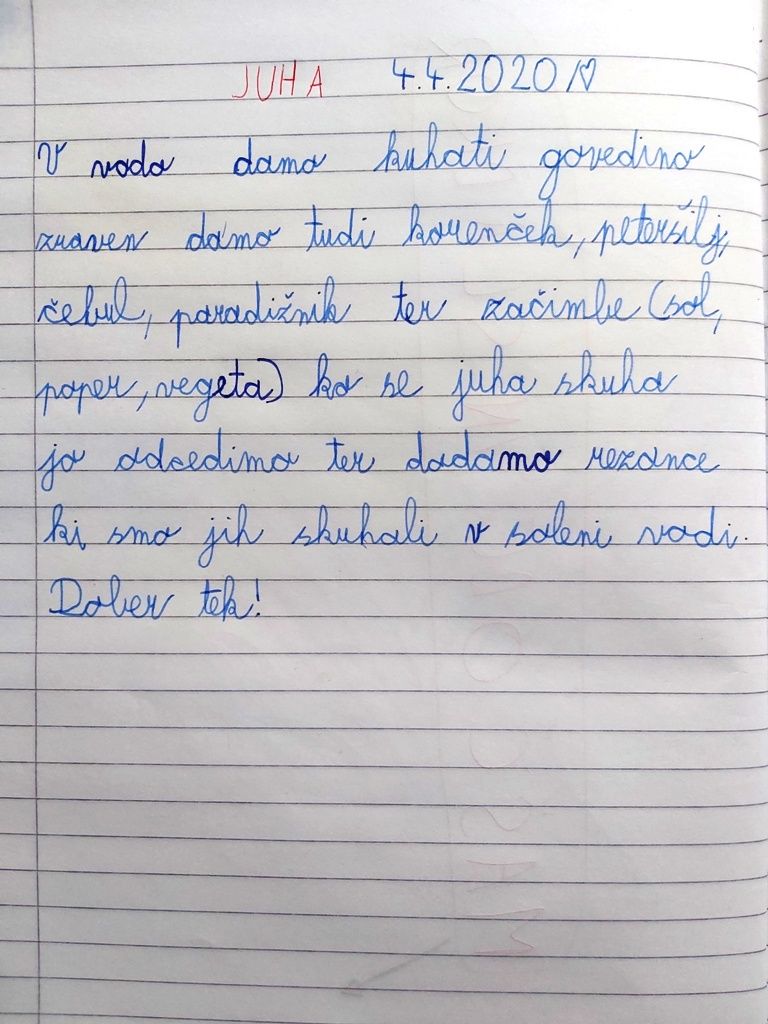 JUHA 4.4.2020 ♡
V vodo damo kuhati govedino
zraven damo tudi korenček, peteršilj,
čebul, paradižnik ter začimbe (sol,
poper, vegeta) ko se juha skuha
jo odcedimo ter dodamo rezance
ki smo jih skuhali v soleni vodi.
Dober tek!